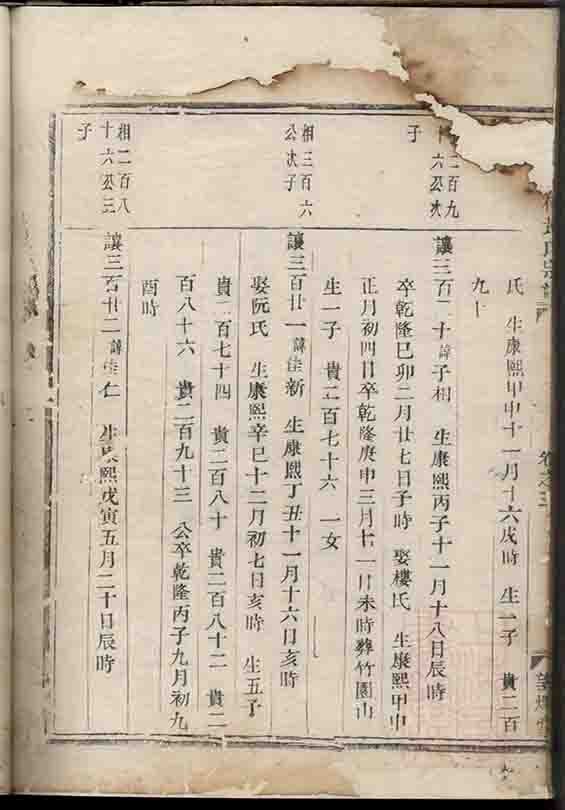 氏　生康熙甲申十一月十六戌時　生一子　貴二百
九十
二百九
六公次
子
讓三百二十諱子相　生康熙丙子十一月十八日辰時
卒乾隆己卯二月廿七日子時　娶樓氏　生康熙甲申
正月初四日卒乾隆庚申三月廿一日未時葬竹園山
生一子　貴二百七十六　一女
相三百六
公次子
讓三百廿一諱佳新　生康熙丁丑十一月十六日亥時
娶阮氏　生康熙辛巳十二月初七日亥時　生五子
貴二百七十四　貴二百八十　貴二百八十二　貴二
百八十六　貴二百九十三　公卒乾隆丙子九月初九
酉時
相二百八
十六公三
子
讓三百廿二諱佳仁　生康熙戊寅五月二十日辰時